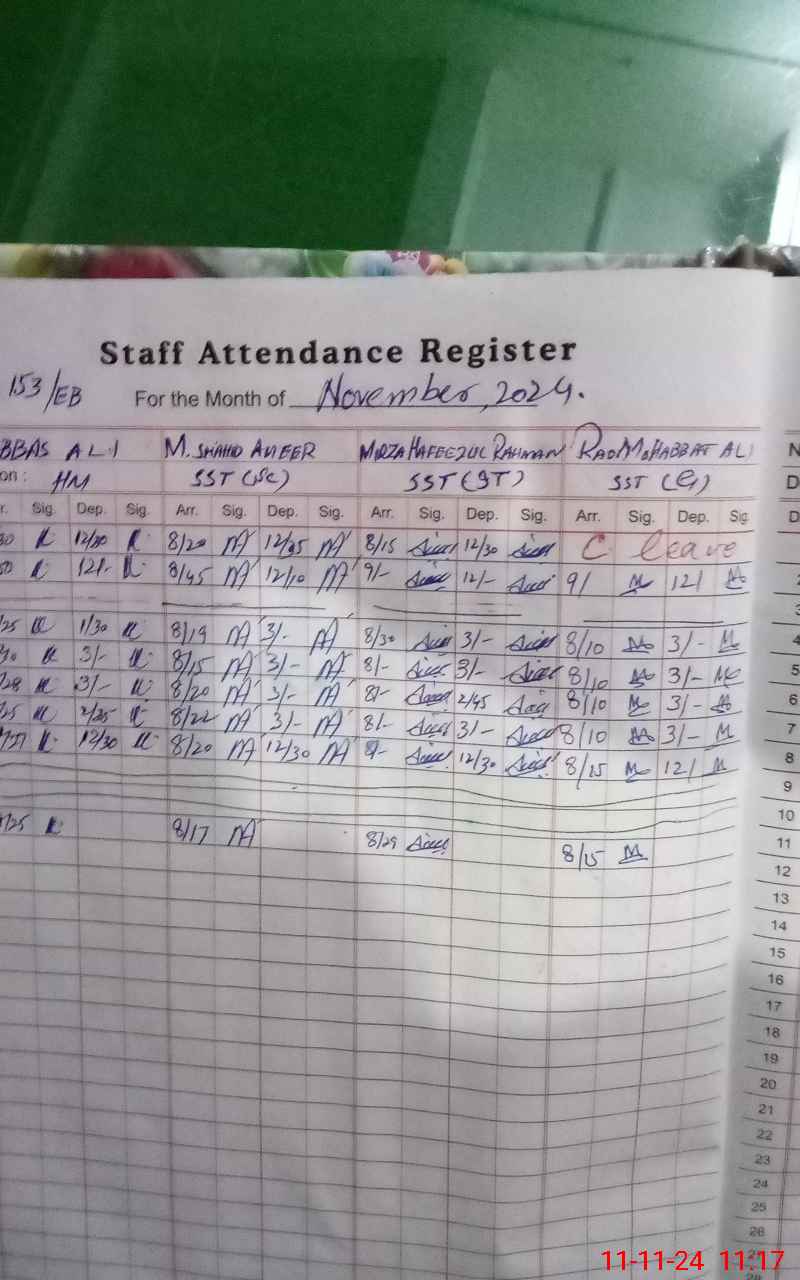 Staff Attendance Register
153/EB For the Month of November, 2024.
BBAS ALI M. SHAHID RAO MOHABBAT ALI N
on: HM SST (Sc) SST (GT) SST (G) D
r. Sig. Dep. Sig. Arr. Sig. Dep. Sig. Arr. Sig. Dep. Sig. Arr. Sig. Dep. Sig D
30 12/30 8/20 8/15 12/30 C leave
50 12/- 8/45 12/10 9/- 12/- 9/ 12/ 2
3
/25 1/30 8/19 3/- 8/30 3/- 8/10 3/- 4
3/- 8/15 3/- 8/- 3/- 8/10 3/- 5
/28 3/- 8/20 3/- 8/- 2/45 8/10 3/- 6
2/25 8/22 3/- 8/- 3/- 8/10 3/- 7
12/30 8/20 12/30 12/30 8/15 12/ 8
9
10
/25 8/17 8/29 8/15 11
12
13
14
15
16
17
18
19
20
21
22
23
24
25
26
27
28
11-11-24 11:17